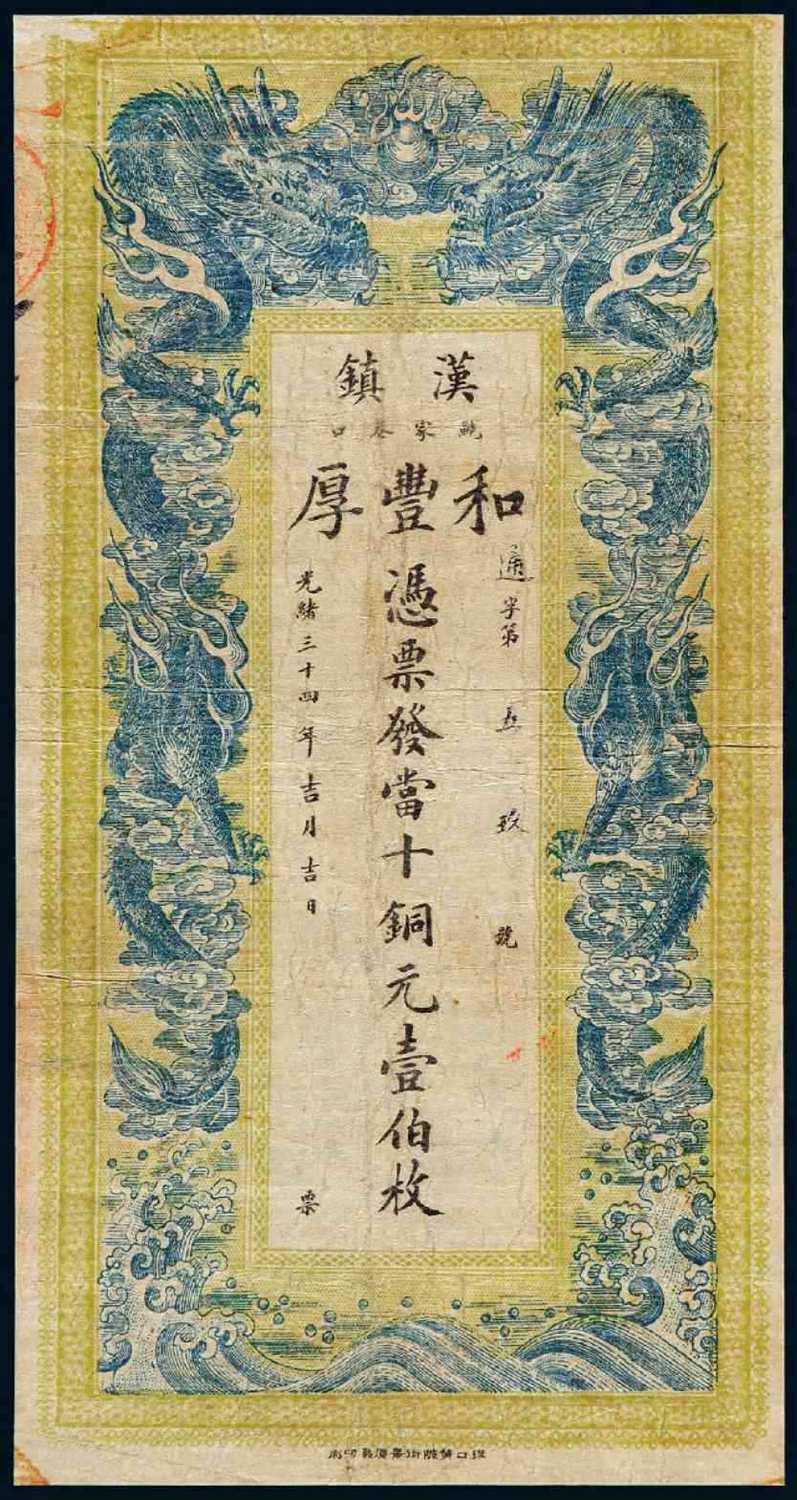 漢鎮
鮑家巷口
和豐厚
通字第五玖號
憑票發當十銅元壹伯枚
光緒三十四年吉月吉日票
漢口黃陂街